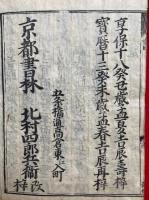 享保十八癸丑歳孟夏吉辰壽梓
寶暦十三癸未歳孟春吉辰再梓
五条橋通高倉東入町
京都書林 北村四郎兵衛 改梓